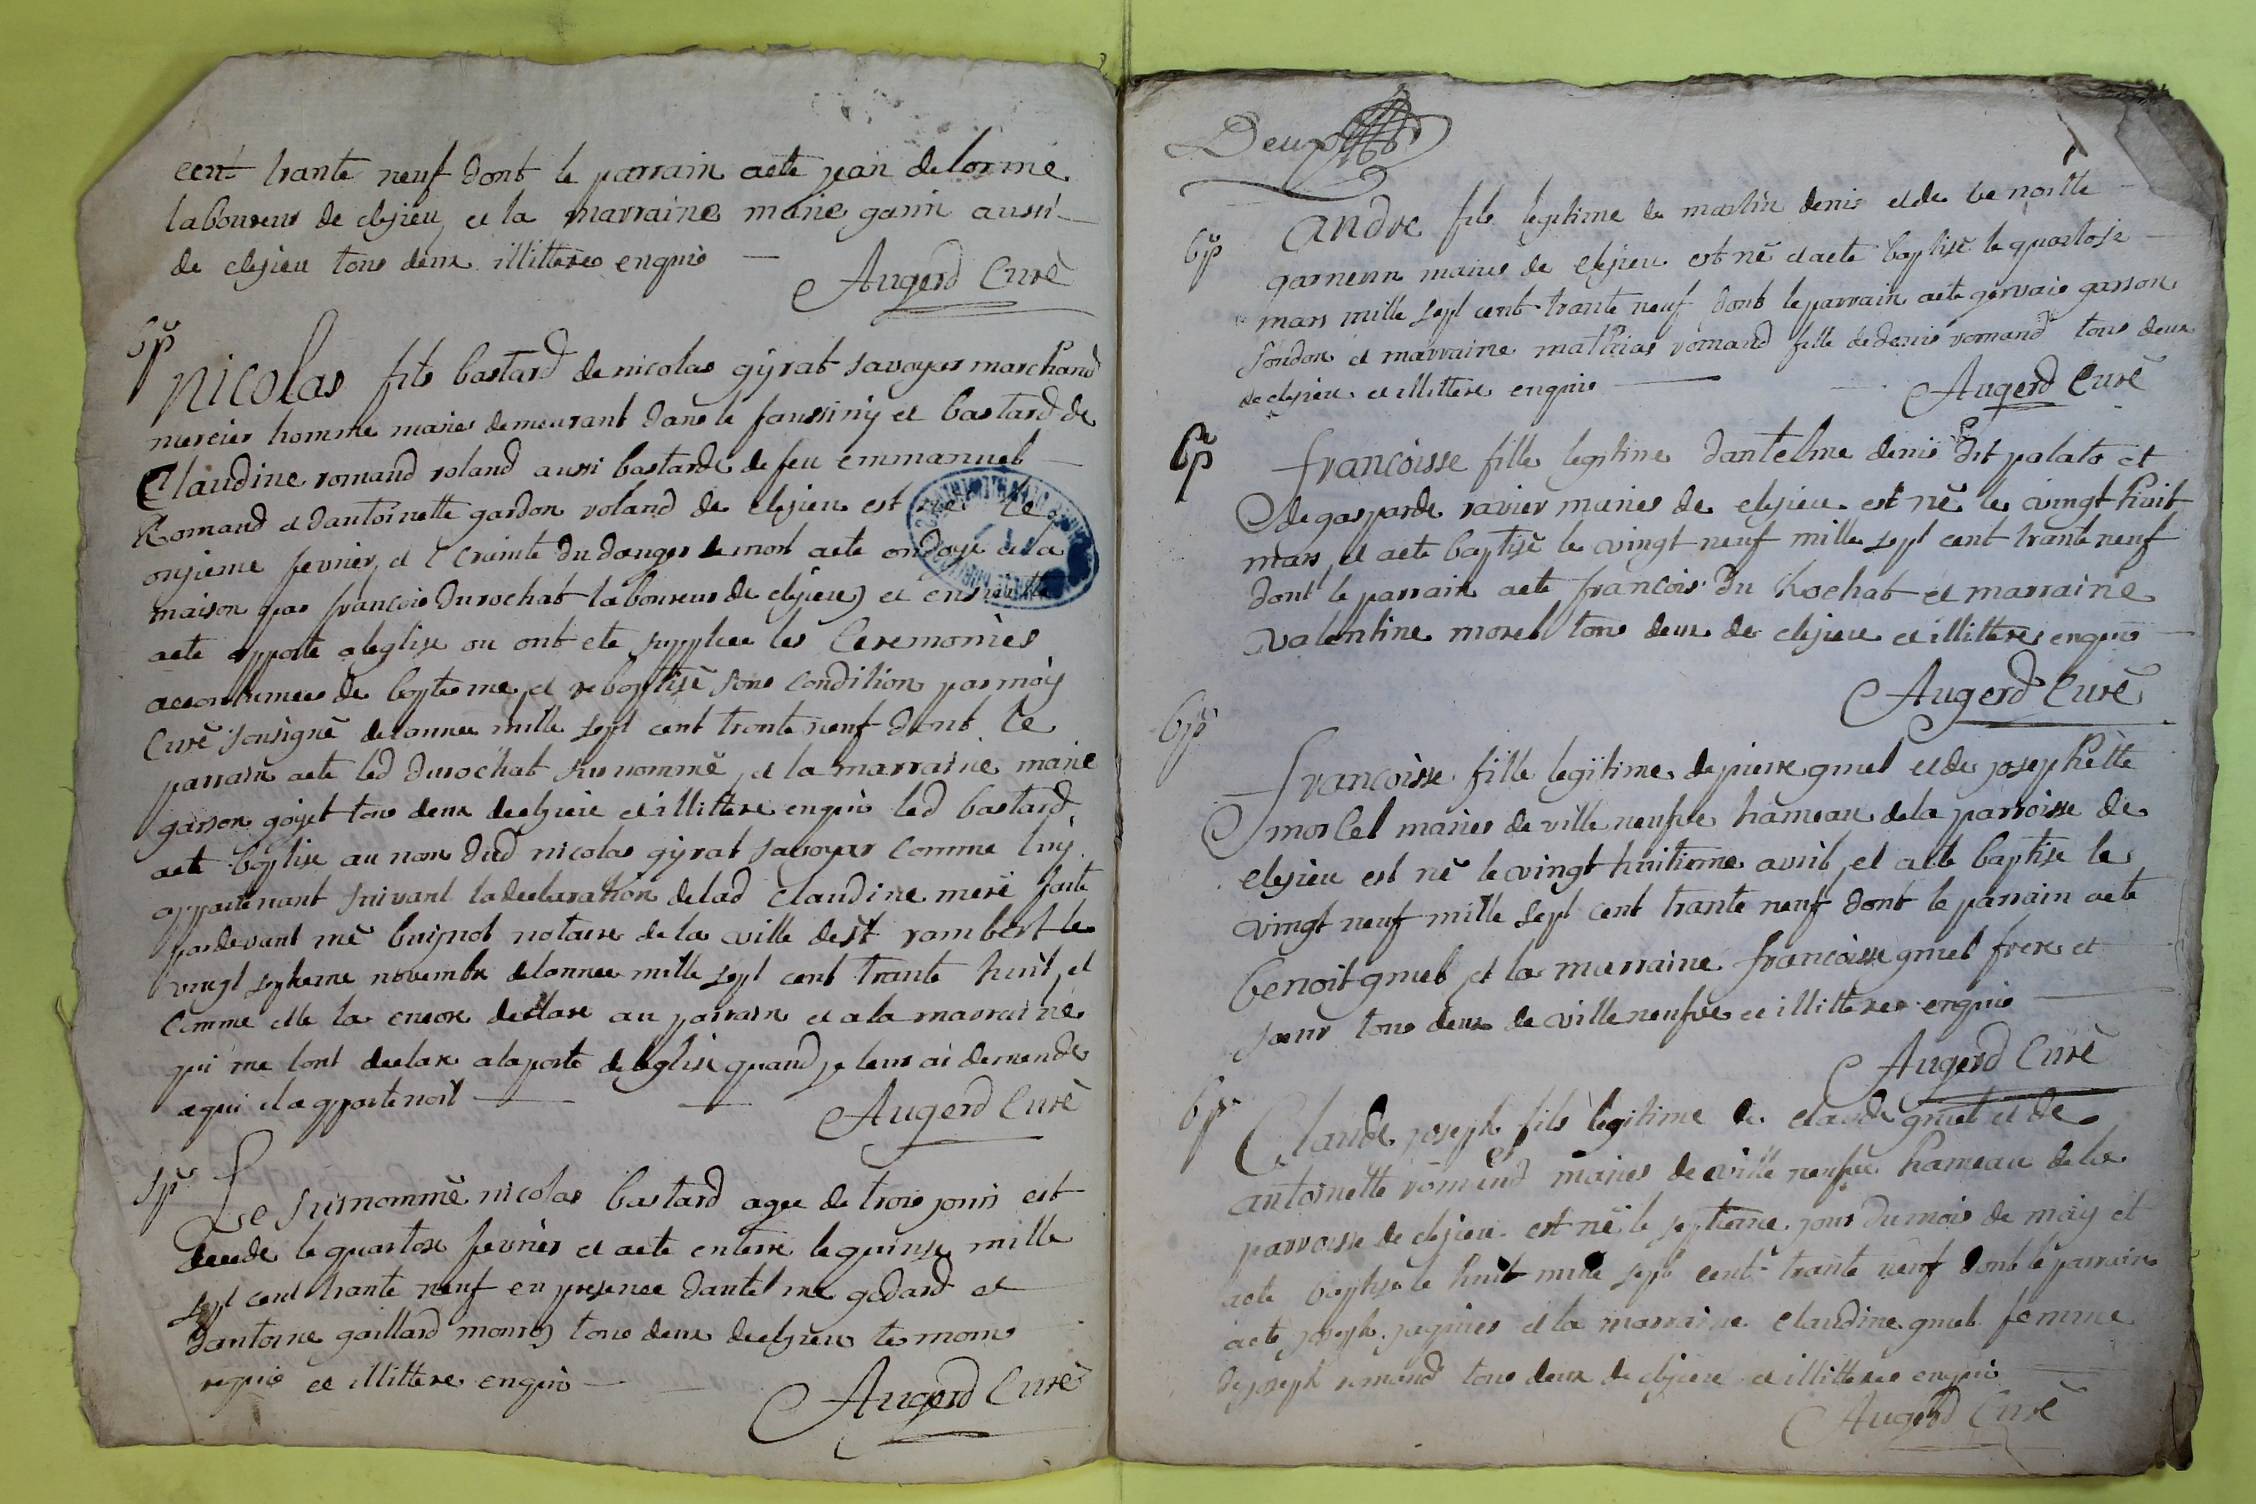 cent trante neuf dont le parrain aeté jean delorme
laboureur de clesieu et la marraine marie garin aussi
de clesieu tous deux illitteres enquis
Augerd Curé
Bp
Nicolas fils bastard de nicolas gÿrat savoyar marchand
mercier homme mariés demeurant dans le faussiniy et bastard de
Claudine romand roland aussi bastarde de feu emmanuel
Romand et dantoinette gardon roland de clesieu est né le
onzieme fevrier, et crainte du danger de mort aeté ondoye a la
maison par françois durochat laboureur de clesieu, et ensuitte
aeté apporté a leglise ou ont eté supplee les Ceremonies
accoutumees de baptesme, et rebaptisé sous condition par moÿ
Curé sousigné de lannee mille sept cent trante neuf dont le
parrain aeté led durochat susnommé, et la marraine marie
garson goyet tous deux de clesieu et illittere enquis led bastard
aeté baptisé au nom dud nicolas gÿrat savoyar comme luÿ
appartenant suivant la declaration de lad Claudine mere faite
pardevant me buynot notaire de la ville de st rambert le
vingt septieme novembre de lannee mille sept cent trante huit, et
comme elle la encore declare au parrain et a la marraine
qui me lont declare a la porte de leglise quand je leur ai demandé
a qui il appartenoit
Augerd Curé
Sp
Le susnommé nicolas bastard agee de trois jours est
decede le quartose fevrier et aeté enterre le quinse mille
sept cent trante neuf en presence dantelme godard et
dantoine gaillard tous deux de clesieu temoins
requis et illittere enquis
Augerd Curé
Deux
Bp
André fils legitime de martin denis et de benoitte
mariés de clesieu est né et aeté baptisé le quartose
mars mille sept cent trante neuf dont le parrain aeté gervais garson
et marraine mathias romand fille de denis romand tous deux
de clesieu et illittere enquis
Augerd Curé
Bp
francoisse fille legitime dantelme denis dit palato et
de gasparde ravier mariés de clesieu est né le vingt huit
mars, et aeté baptisé le vingt neuf mille sept cent trante neuf
dont le parrain aeté francois du Rochat et marraine
valentine morel tous deux de clesieu et illitteres enquis
Augerd Curé
Bp
francoisse fille legitime de pierre gruel et de josephette
morlel mariés de ville neufve hameau de la parroisse de
clesieu est né le vingt huitieme avril, et aeté baptisé le
vingt neuf mille sept cent trante neuf dont le parrain aeté
benoit gruel, et la marraine francoisse gruel frere et
soeur tous deux de ville neufve et illitteres enquis
Augerd Curé
Bp
Claude joseph fils legitime de claude gruel et de
antoinette romand mariés de ville neufve hameau de la
parroisse de clesieu est né le septieme jour du mois de maÿ et
aeté baptisé le huit mille sept cent trante neuf dont le parrain
aeté joseph et la marraine claudine gruel femme
de joseph romand tous deux de clesieu et illitteres enquis
Augerd Curé